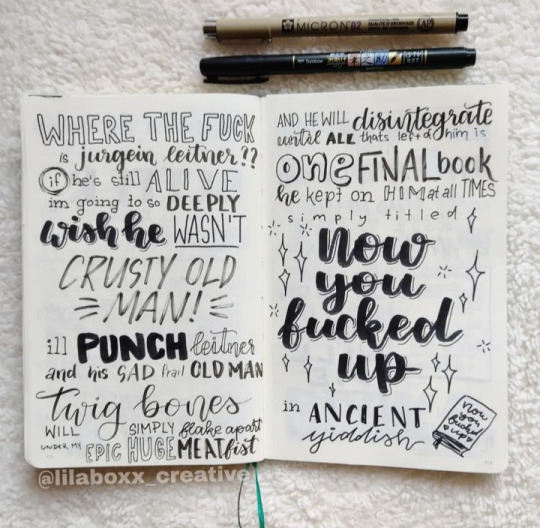 MICRON 02
WHERE THE FUCK
is jurgein leitner??
if he's still ALIVE
im going to so DEEPLY
wish he WASN'T
CRUSTY OLD
MAN!
ill PUNCH leitner
and his SAD frail OLD MAN
twig bones
WILL SIMPLY flake apart
UNDER MY EPIC HUGE MEAT fist
AND HE WILL disintegrate
until ALL thats left of him is
one FINAL book
he kept on HIM at all TIMES
simply titled
now
you
fucked
up
in ANCIENT
yiddish
now
you
fucked
up
@lilaboxx_creative